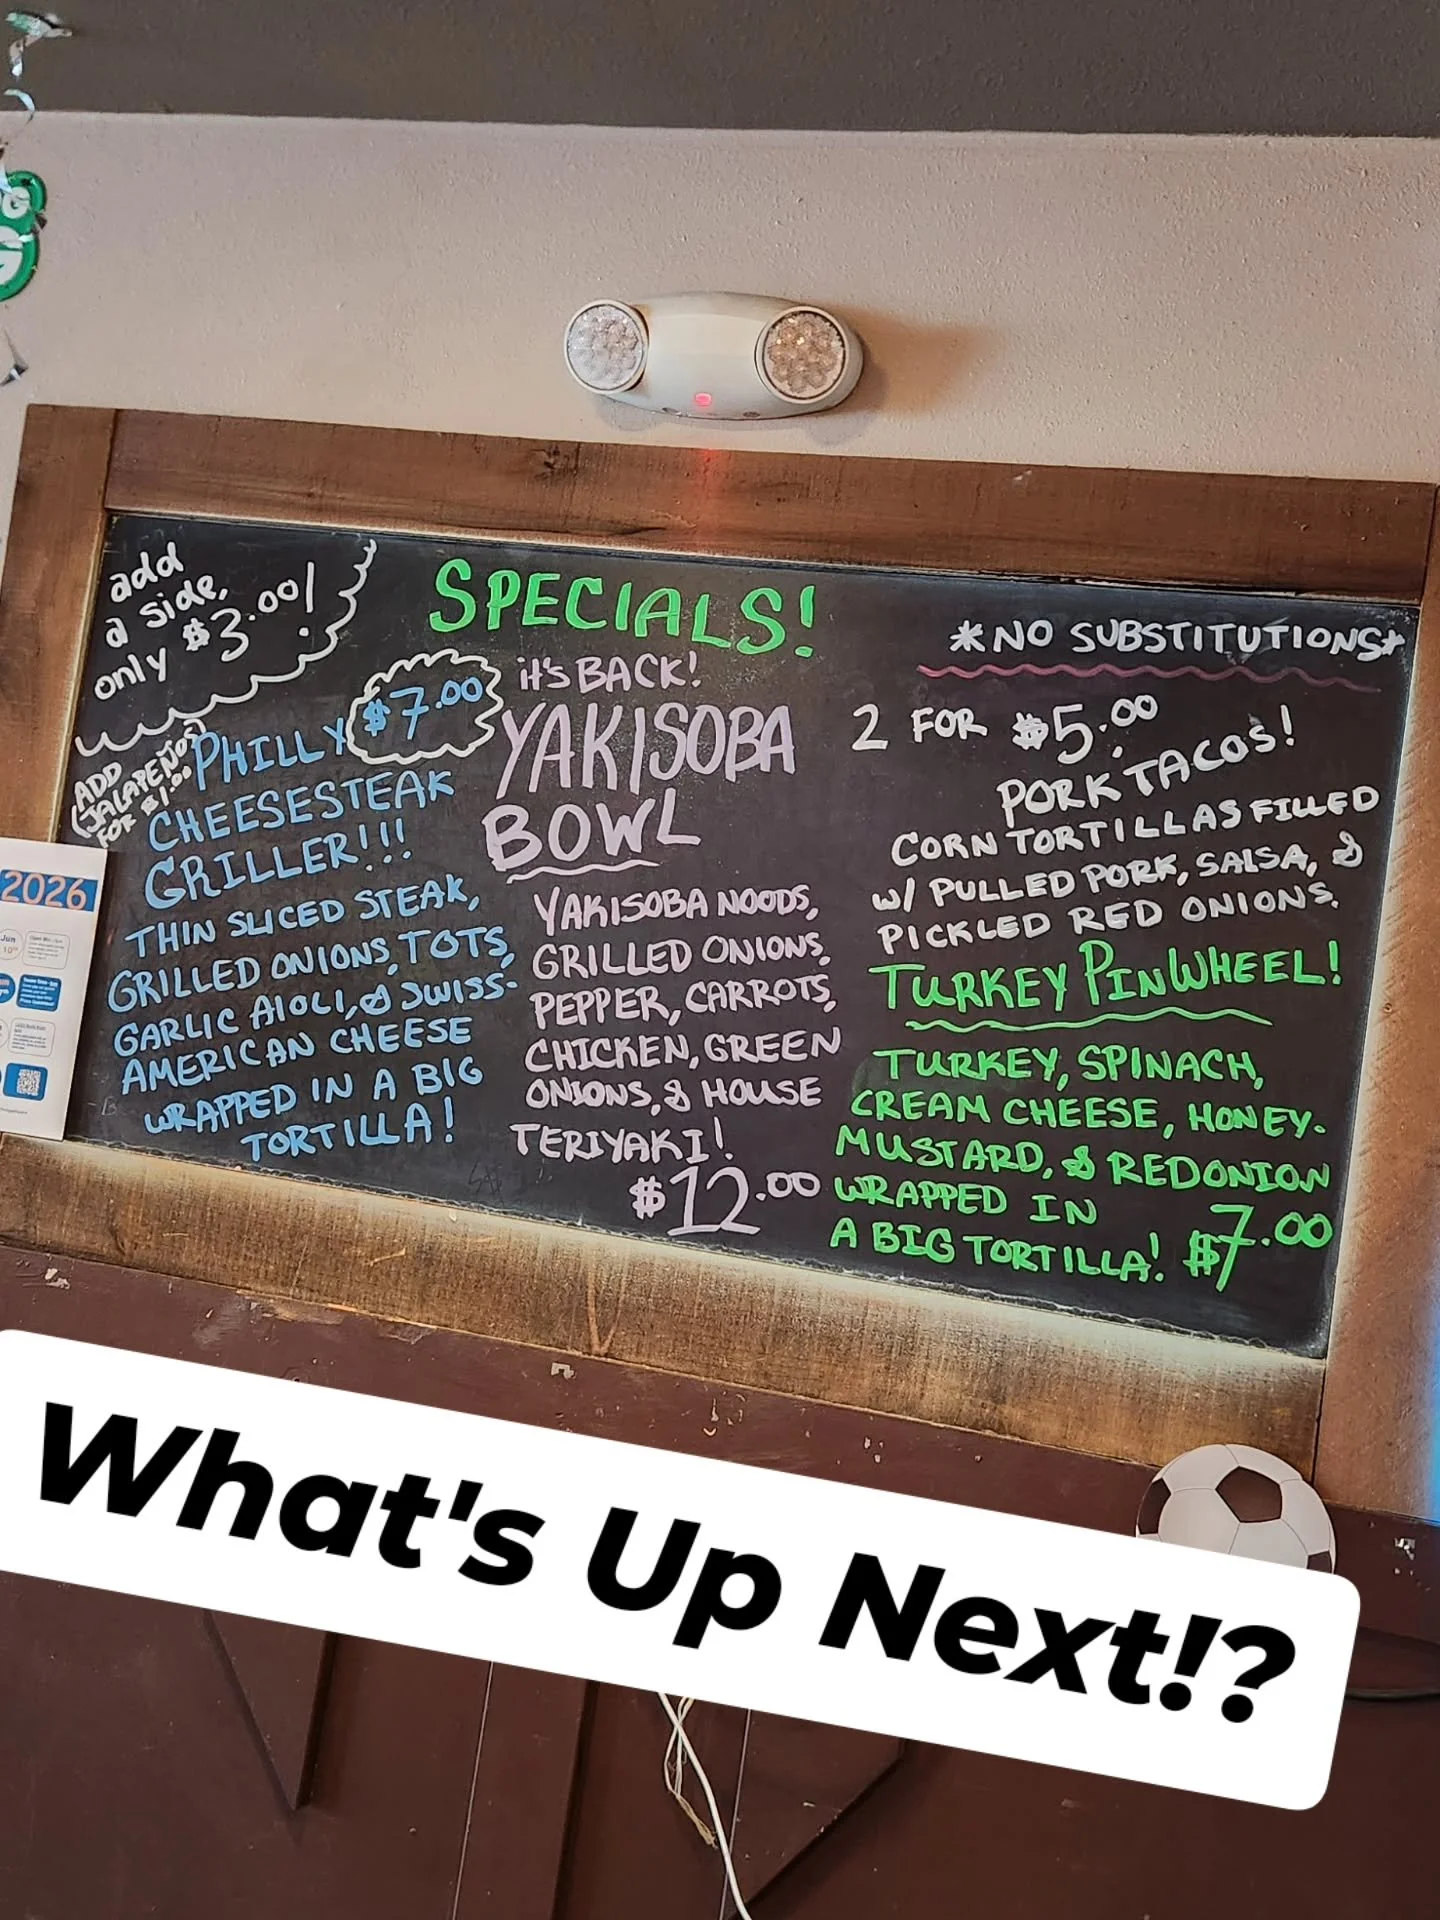 add
a side,
only $3.00!
SPECIALS!
*NO SUBSTITUTIONS*
ADD
(JALAPEÑOS)
FOR $1.00
PHILLY $7.00
CHEESESTEAK
GRILLER!!!
THIN SLICED STEAK,
GRILLED ONIONS, TOTS,
GARLIC AIOLI, & SWISS-
AMERICAN CHEESE
WRAPPED IN A BIG
TORTILLA!
it's BACK!
YAKISOBA
BOWL
YAKISOBA NOODS,
GRILLED ONIONS,
PEPPER, CARROTS,
CHICKEN, GREEN
ONIONS, & HOUSE
TERIYAKI!
$12.00
2 FOR $5.00
PORK TACOS!
CORN TORTILLAS FILLED
W/ PULLED PORK, SALSA, &
PICKLED RED ONIONS.
TURKEY PINWHEEL!
TURKEY, SPINACH,
CREAM CHEESE, HONEY-
MUSTARD, & RED ONION
WRAPPED IN
A BIG TORTILLA! $7.00
2026
Jun
What's Up Next!?